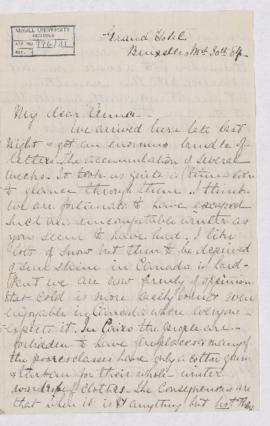 McGILL UNIVERSITY
ARCHIVES
ACC. NO.
REF.
Grand Hotel
Bruxelles Mch 30th 84
My dear Anna
We arrived here late last
night & got an enormous bundle of
letters, the accumulation of several
weeks. It took us quite
to glance through them. I think
we are fortunate to have escaped
such an uncomfortable winter as
you seem to have had. I like
lots of snow but then to be deprived
of in Canada is hard
But we are now firmly of opinion
that cold is more easily borne & even
enjoyable in Canada where everyone
expects it. In Cairo the people are
forbidden to have fireplaces & many of
the poorer classes have only a cotton gown
& turban for their whole winter
wardrobe of clothes. The consequences are
that when it is anything but hot they